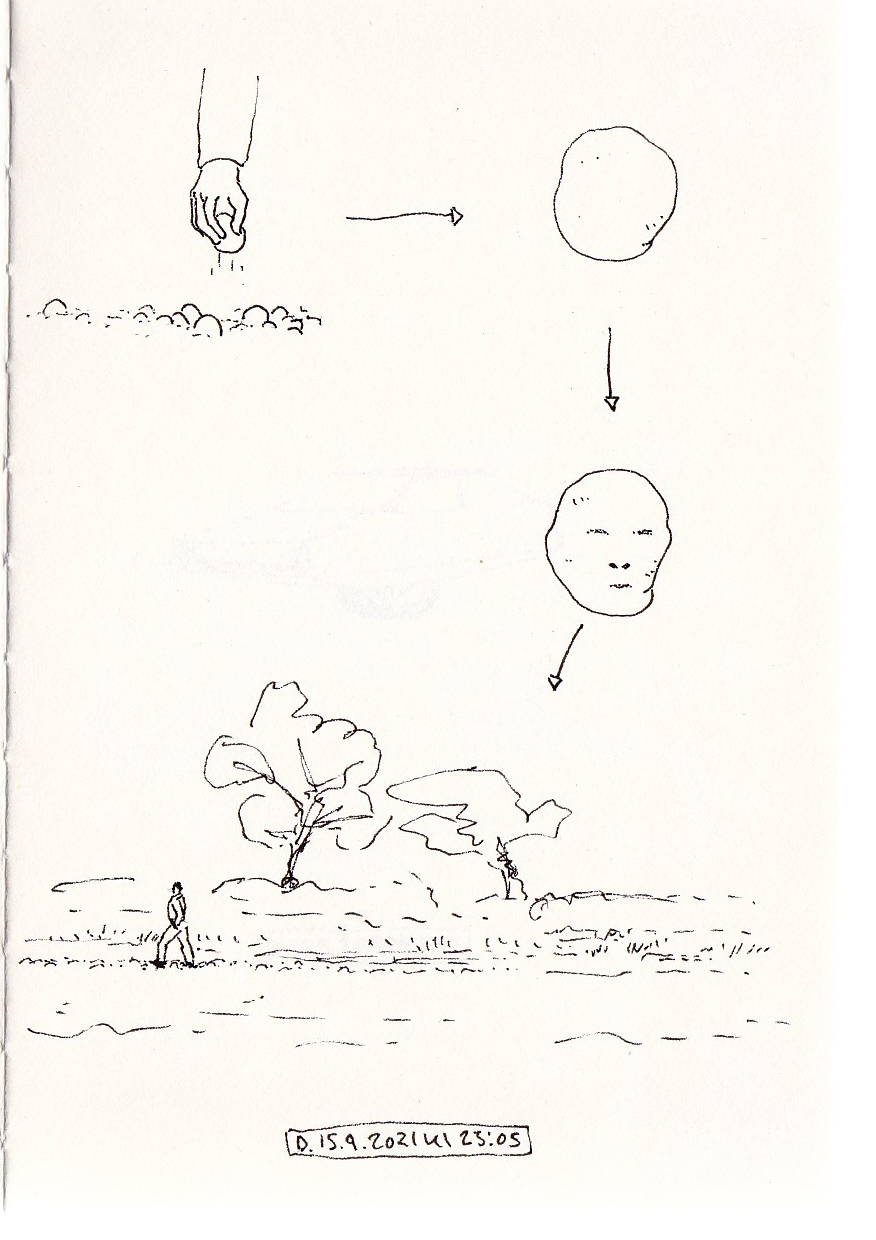 D. 15.9.2021 kl 23:05